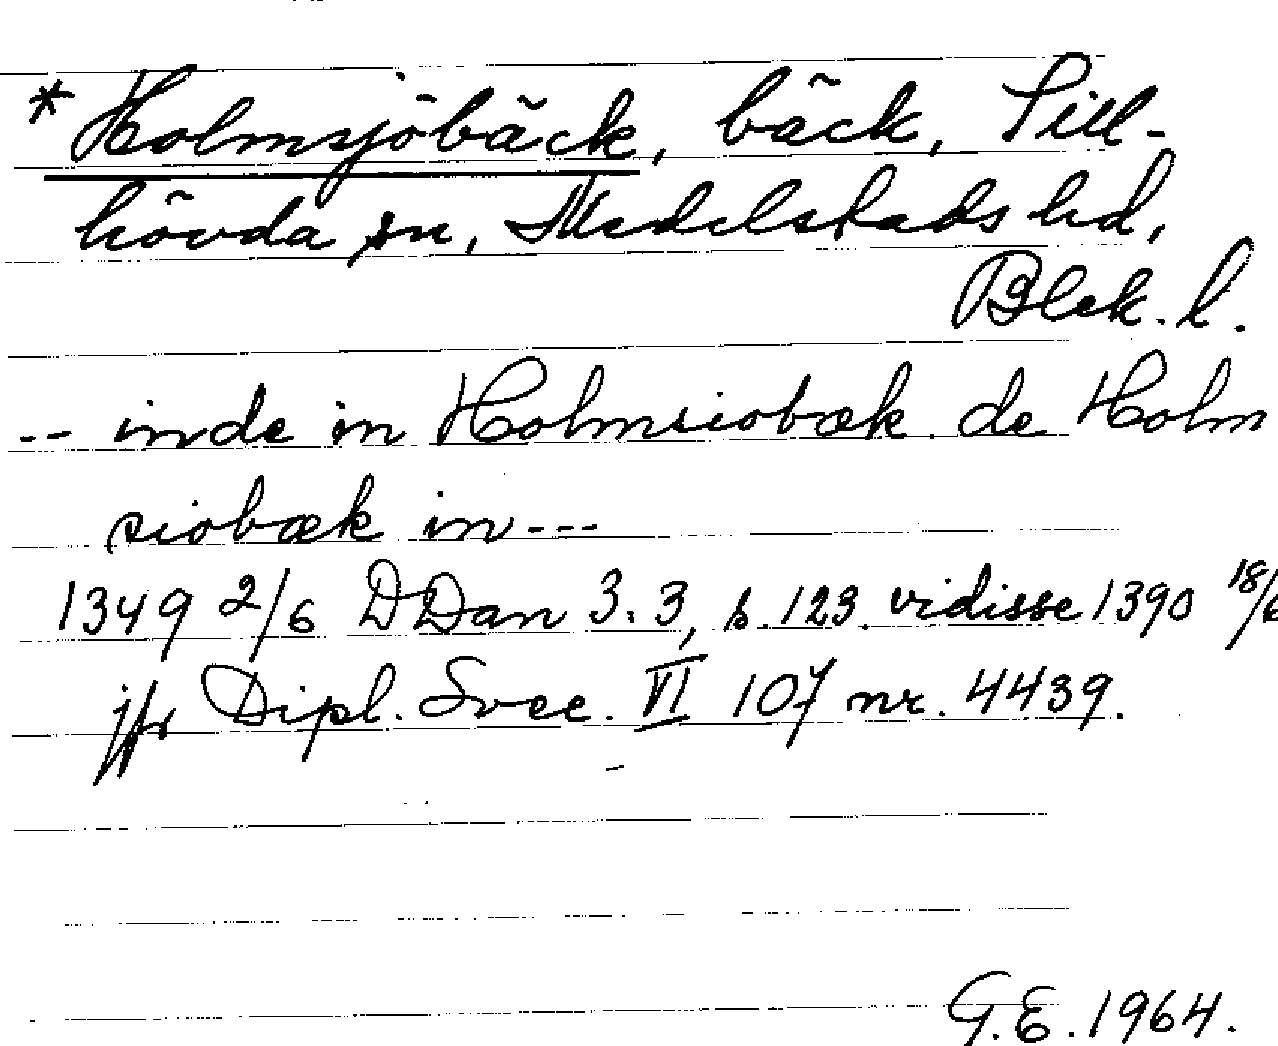 *Holmsjöbäck, bäck, Till-
hövda sn, Medelstads hd,
Blek. l.
-- inde in Holmsiobæk de Holm
siobæk in ---
1349 2/6 DDan 3:3, s. 123. vidisse 1390 18/6
jfr Dipl. Svec. VI 107 nr. 4439.
G.E. 1964.